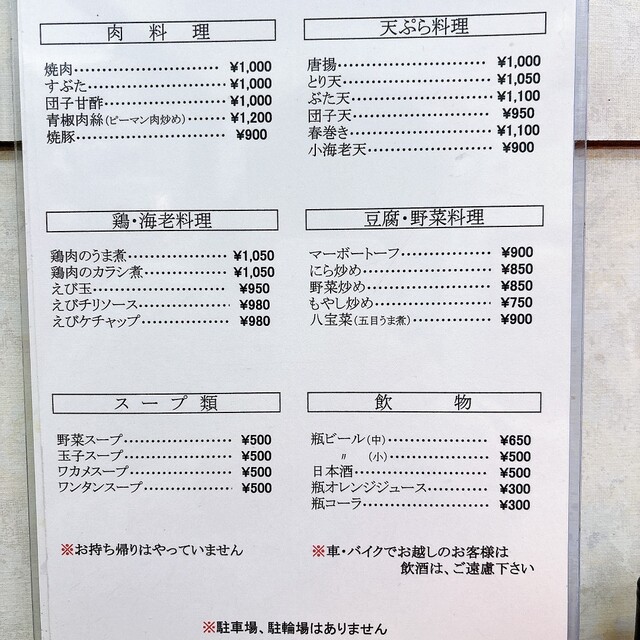 肉料理
焼肉……………………… ¥1,000
すぶた…………………… ¥1,000
団子甘酢………………… ¥1,000
青椒肉絲(ピーマン肉炒め)…… ¥1,200
焼豚……………………… ¥900
天ぷら料理
唐揚……………………… ¥1,000
とり天…………………… ¥1,050
ぶた天…………………… ¥1,100
団子天…………………… ¥950
春巻き…………………… ¥1,100
小海老天………………… ¥900
鶏・海老料理
鶏肉のうま煮…………… ¥1,050
鶏肉のカラシ煮………… ¥1,050
えび玉…………………… ¥950
えびチリソース………… ¥980
えびケチャップ………… ¥980
豆腐・野菜料理
マーボートーフ………… ¥900
にら炒め………………… ¥850
野菜炒め………………… ¥850
もやし炒め……………… ¥750
八宝菜(五目うま煮)………… ¥900
スープ類
野菜スープ……………… ¥500
玉子スープ……………… ¥500
ワカメスープ…………… ¥500
ワンタンスープ………… ¥500
飲物
瓶ビール(中)……………… ¥650
〃 (小)……………… ¥500
日本酒…………………… ¥500
瓶オレンジジュース…… ¥300
瓶コーラ………………… ¥300
※お持ち帰りはやっていません
※車・バイクでお越しのお客様は
飲酒は、ご遠慮下さい
※駐車場、駐輪場はありません